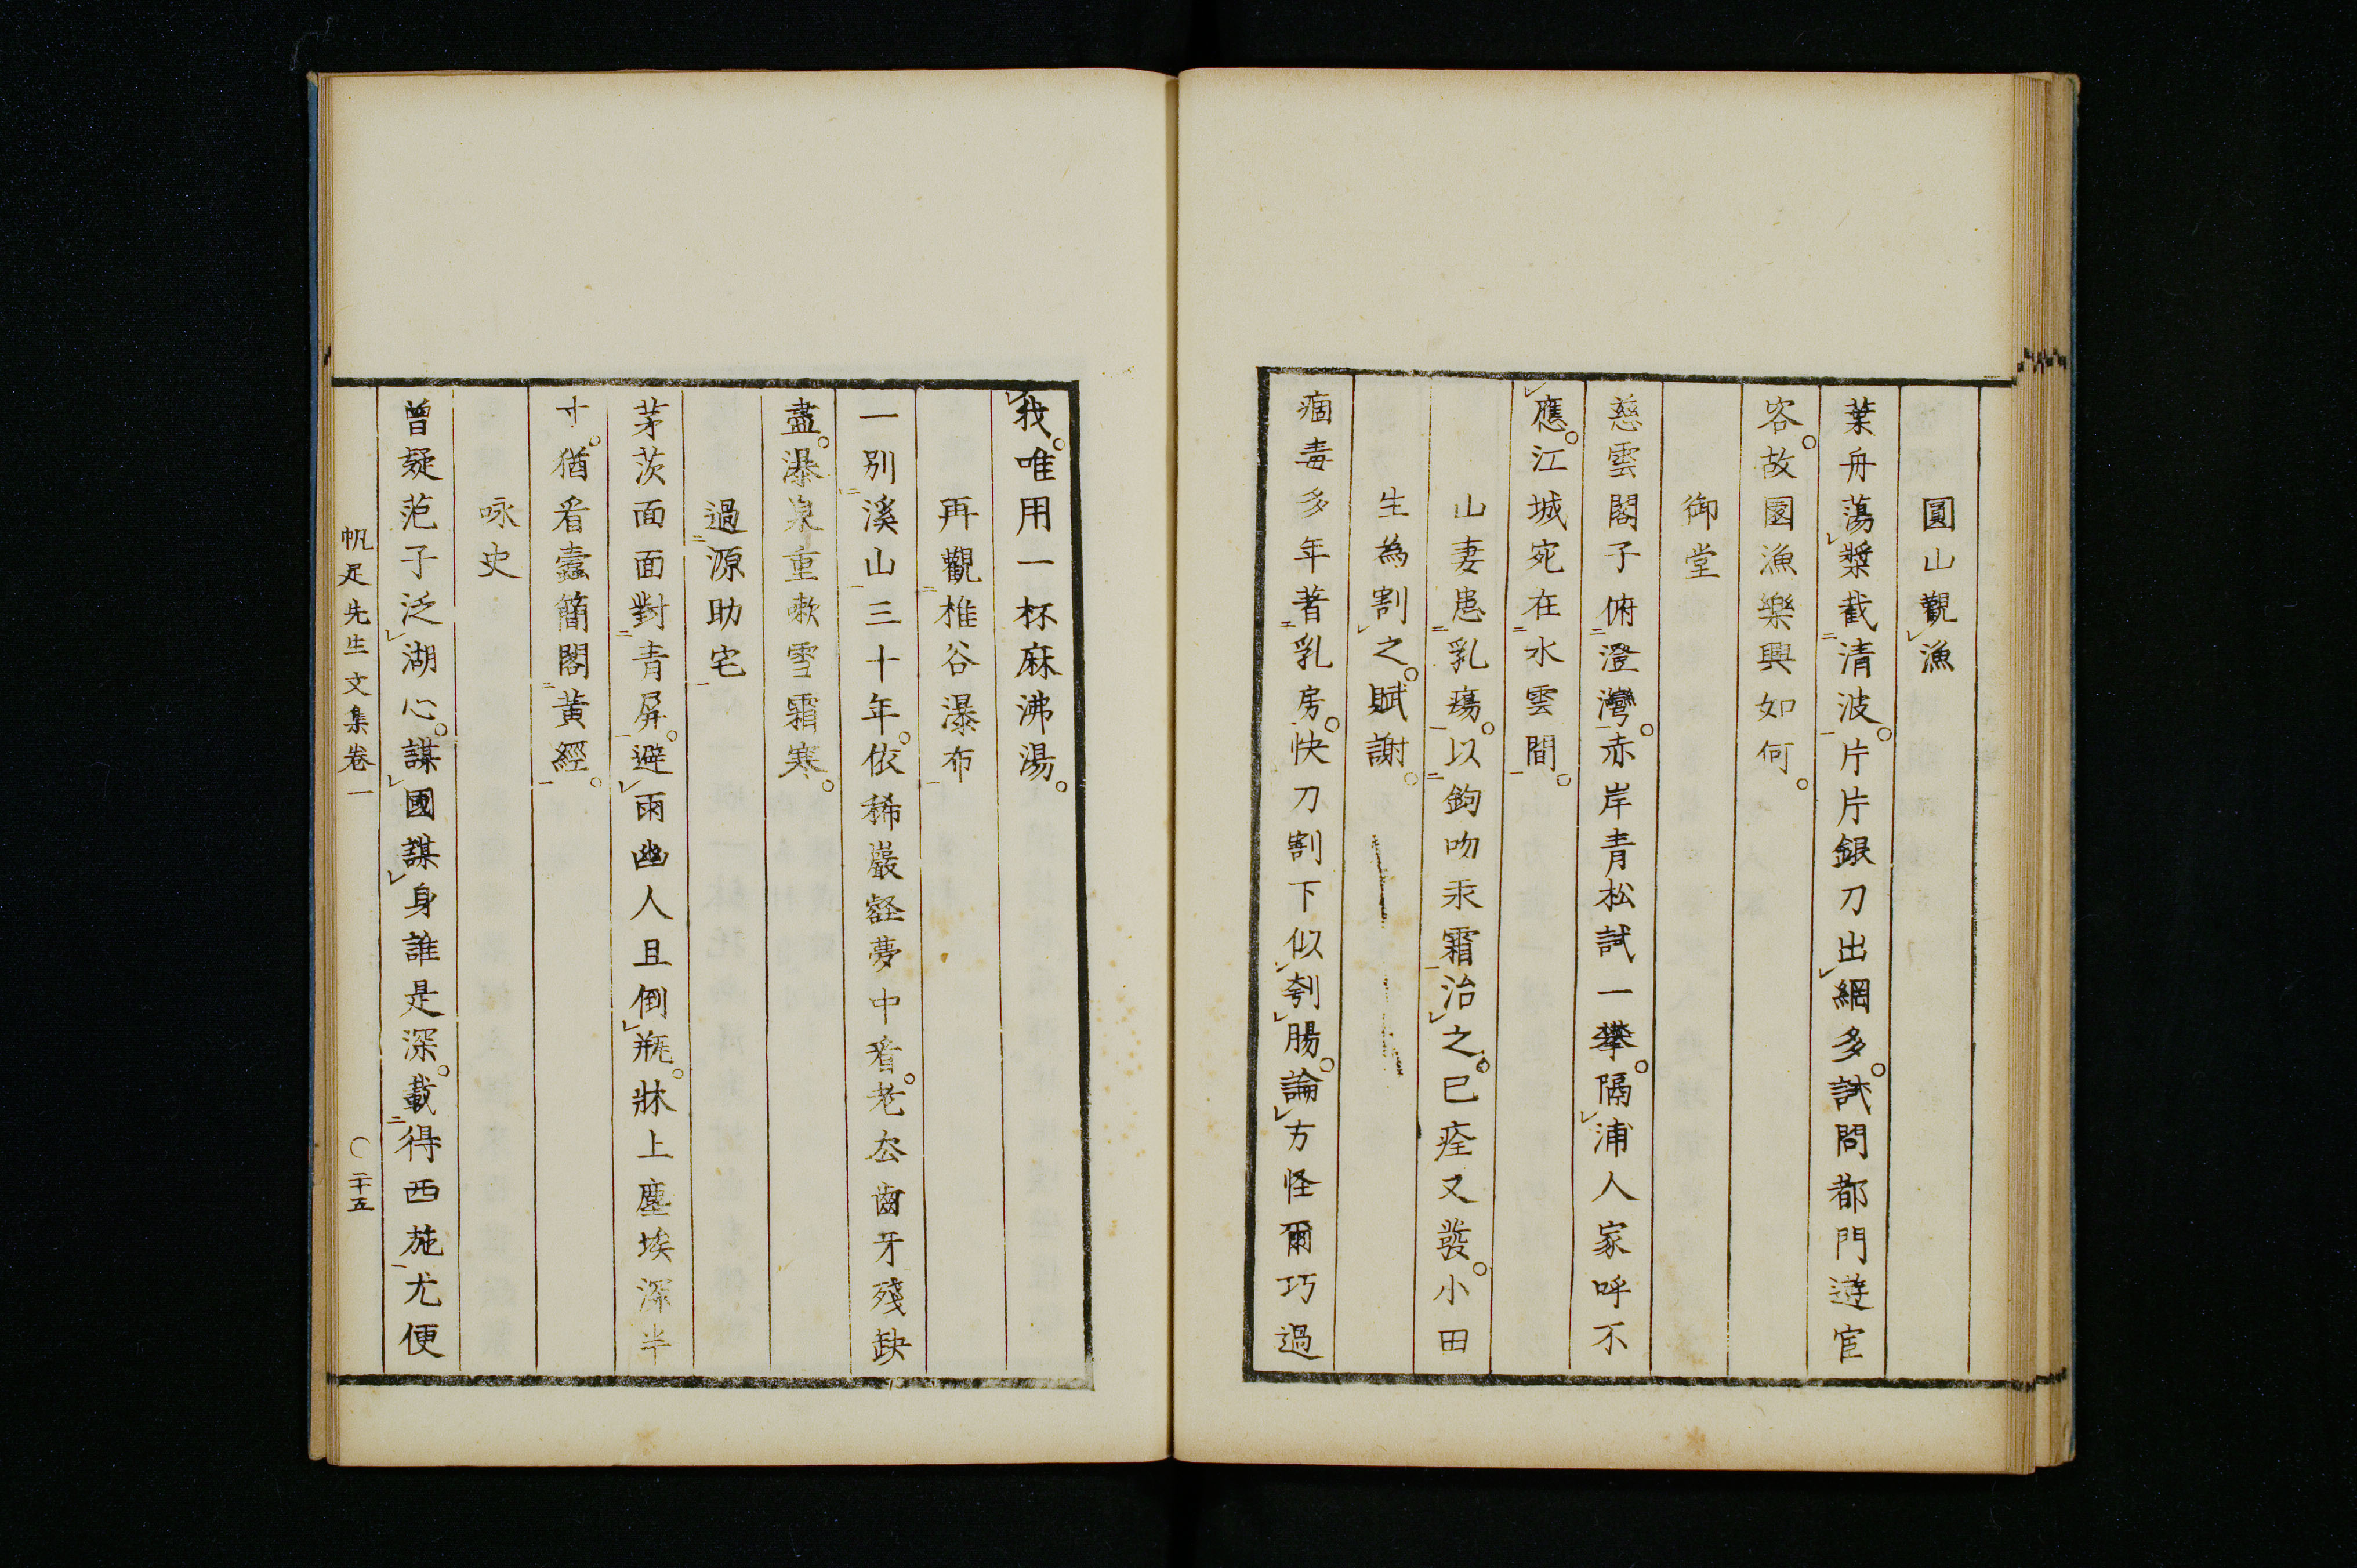 圓山觀漁
葉舟蕩槳截清波。片片銀刀出網多。試問都門遊宦
客。故園漁樂興如何。
御堂
慈雲閣子俯澄灣。赤岸青松試一攀。隔浦人家呼不
應。江城宛在水雲間。
山妻患乳瘍。以鉤吻汞霜治之。已痊又發。小田
生為割之。賦謝。
痼毒多年著乳房。快刀割下似刳腸。論方怪爾巧過
我。唯用一杯麻沸湯。
再觀椎谷瀑布
一別溪山三十年。依稀巖壑夢中看。老厺齒牙殘缺
盡。瀑泉重漱雪霜寒。
過源助宅
茅茨面面對青屏。避雨幽人且倒瓶。牀上塵埃深半
寸。猶看蠹簡閣黃經。
咏史
曾疑范子泛湖心。謀國謀身誰是深。載得西施尤便
帆足先生文集卷一 〇二十五